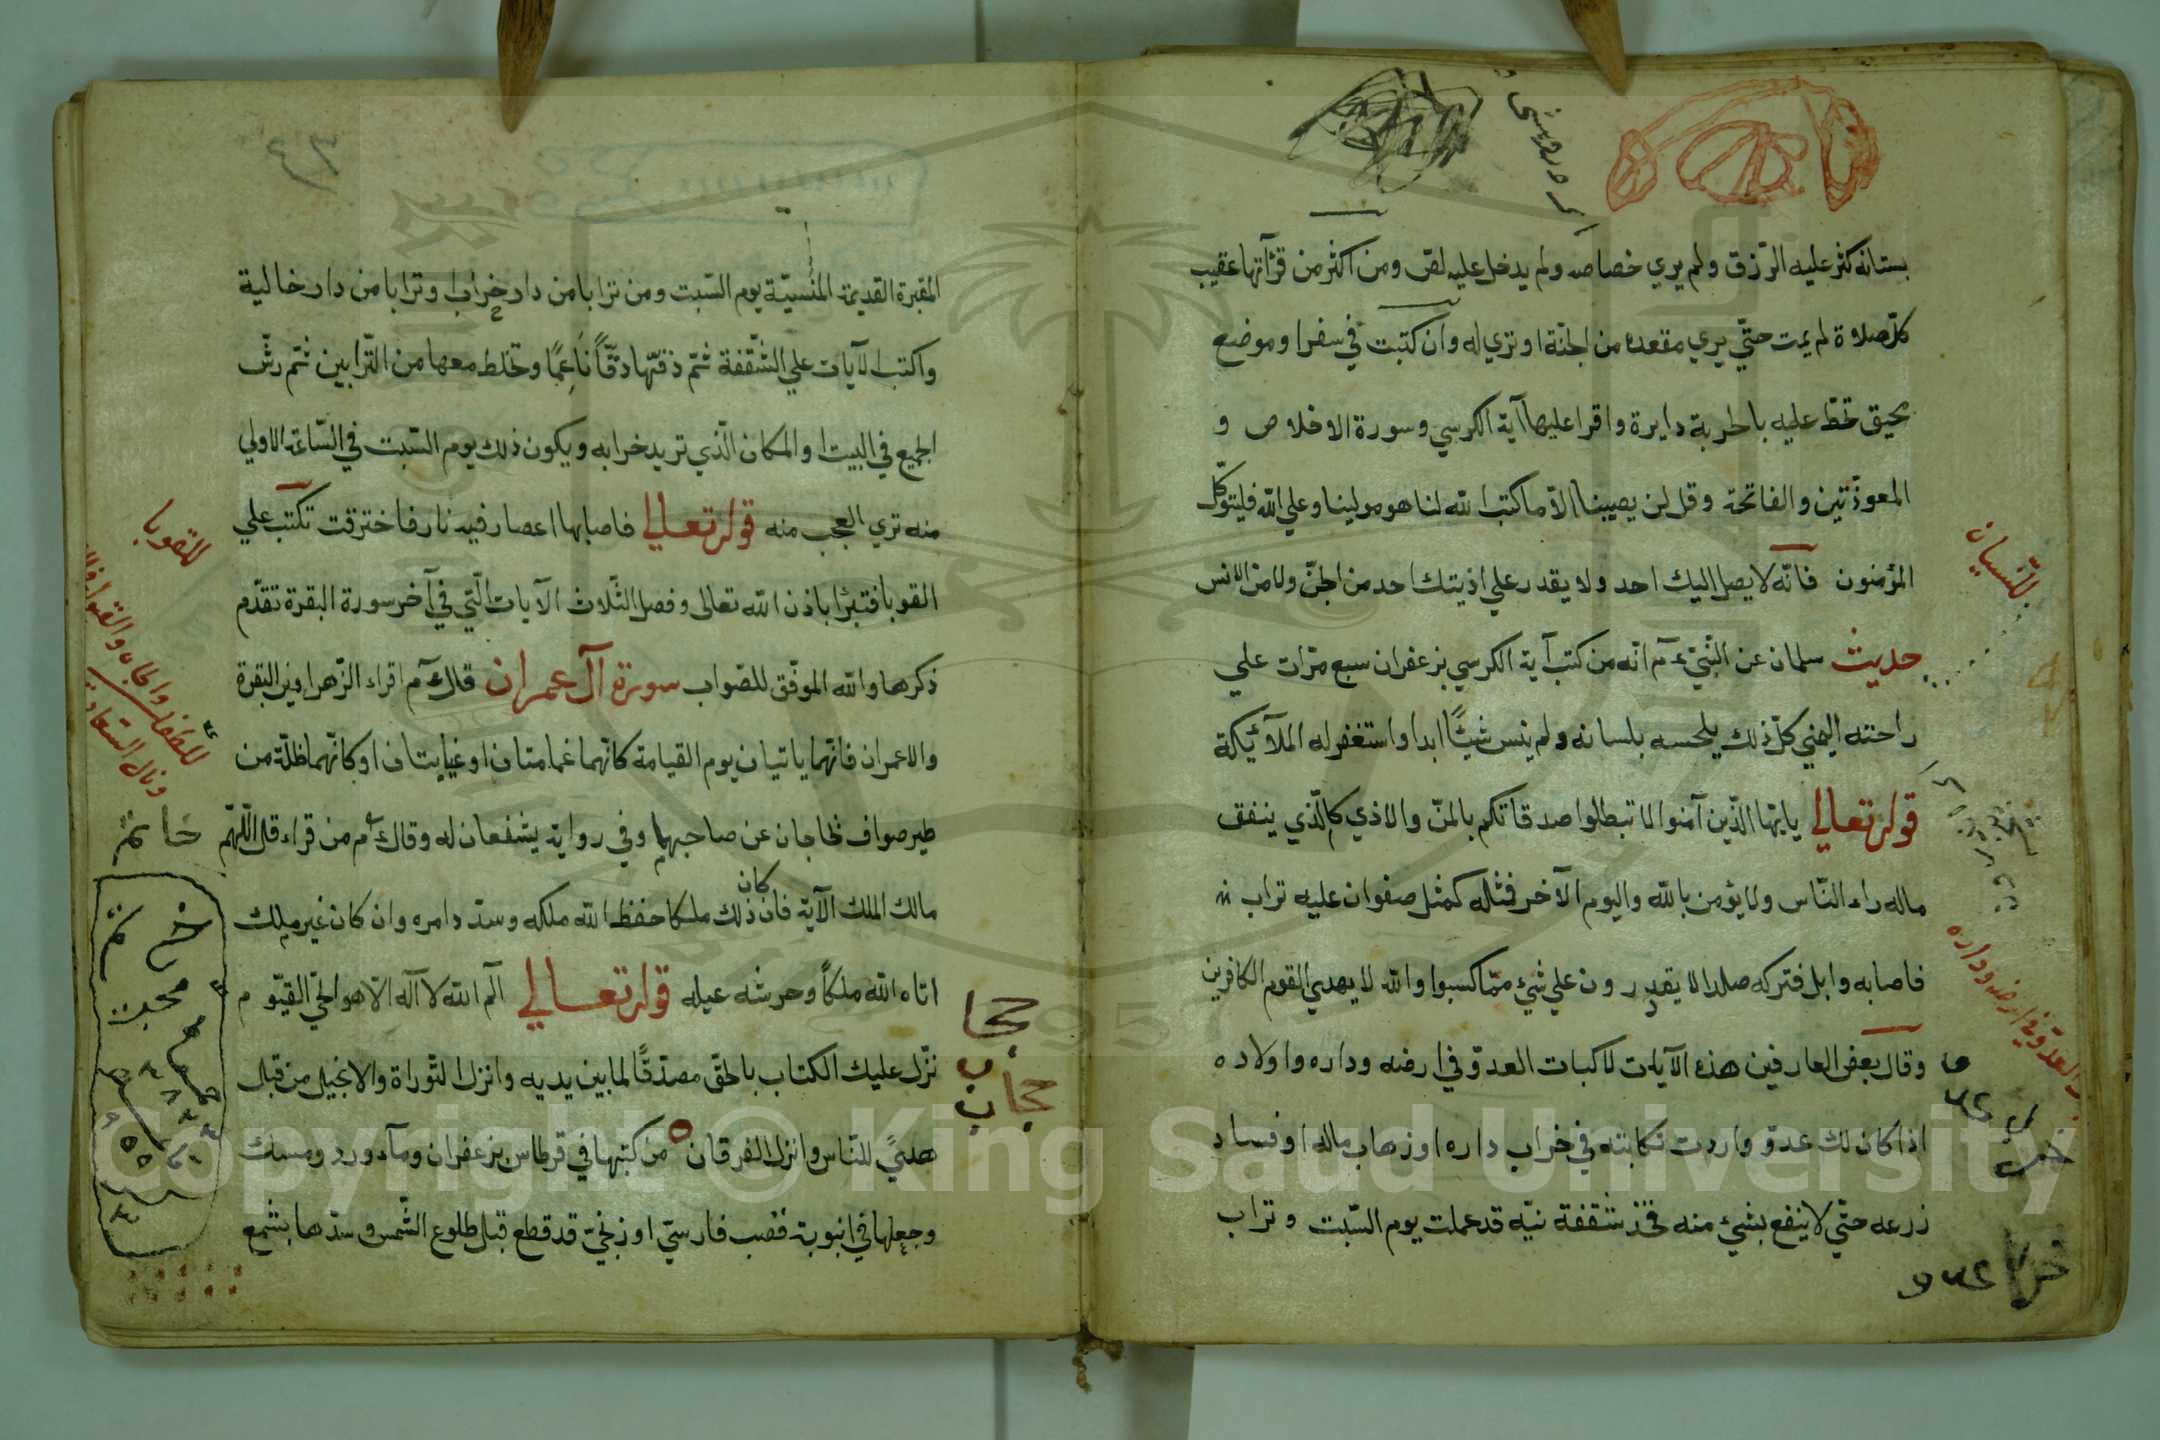 بستانه كثر عليه الرّزق ولم يري خصاصه ولم يدخل عليه لصّ ومن اكثر من قرآتها عقيب
كلّ صلاة لم يمت حتّي يري مقعده من الجنّة اوتري له وان كتبت في سفرا وموضع
تخطّ عليه بالحربة دايرة واقرا عليها آية الكرسي وسورة الاخلاص و
المعوذّتين والفاتحة وقل لن يصيبنا الاّ ما كتب الله لنا هو مولينا وعلي الله فليتوكّل
المؤمنون فانّه لا يصل اليك احد ولا يقدر علي اذيتك احد من الجنّ ولا من الانس
حديث سلمان عن النّبيّ عم انّه من كتب آية الكرسي بزعفران سبع مرّات علي
راحته اليمني كلّ ذلك يلحسه بلسانه ولم ينس شيئًا ابدا واستغفر له الملآئيكة
قوله تعالي يايّها الّذين آمنوا لا تبطلوا صدقاتكم بالمنّ والاذي كالّذي ينفق
ماله راء النّاس ولا يؤمن بالله واليوم الآخر فمثله كمثل صفوان عليه تراب
فاصابه وابل فتركه صلدا لا يقدرون علي شيئ ممّا كسبوا والله لا يهدي القوم الكافرين
وقال بعض العارفين هذه الآيات لاكبات العدوّ في ارضه وداره واولاده
اذا كان لك عدوّ واردت نكابته في خراب داره اوزهاب ماله اوفساد
زرعه حتّي لا ينفع بشيئ منه فخذ شقفة نيّه قد عملت يوم السّبت وتراب
للنّسيان
العدوّ في ارضه وداره
المقبرة القديمة المنسيّة يوم السّبت ومن ترابا من دار خراب وترابا من دار خالية
واكتب الآيات علي الشّقفة ثمّ دقّها دقّاً ناعمًا وتخلط معها من التّرابين ثمّ رشّ
الجميع في البيت اوالمكان الّذي تريد خرابه ويكون ذلك يوم السّبت في السّاعة الاولي
منه تري العجب منه قوله تعالي فاصابها اعصار فيه نار فاخترقت تكتب علي
القوبا فتبرا باذن الله تعالى وفصل الثّلاث الآيات الّتي في آخر سورة البقرة تقدّم
ذكرها والله الموفّق للصّواب سورة آل عمران قال عم اقراء الزّهراوين البقرة
والاعمران فانّهما ياتيان يوم القيامة كانّهما غمامتان اوغيايتان اوكانّهما ظلّة من
طير صواف تحاجان عن صاحبهما وفي رواية يشفعان له وقال عم من قراء قل اللّهمّ
مالك الملك الآية فان كان ذلك ملكا حفظ الله ملكه وسدّد امره وان كان غير ملك
اتاه الله ملكاً وحرسه قوله تعالي الم الله لا آله الاّ هو الحيّ القيّوم
نزّل عليك الكتاب بالحقّ مصدّقًا لما بين يديه وانزل التّوراة والانجيل من قبل
هديً للنّاس وانزل الفرقان من كتبها في قرطاس بزعفران ومآء ورد ومسك
وجعلها في انبوبة قصب فارسيّ اوزنجيّ قد قطع قبل طلوع الشّمس وسدّها بشمع
للقوبا
حجا
ب
حجاب
خاتم
محبت
Copyright © King Saud University